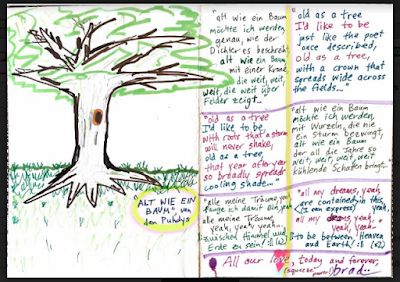 "alt wie ein Baum
möchte ich werden,
genau, wie der
Dichter es beschreibt
alt wie ein Baum,
mit einer Krone,
die weit, weit,
weit, die weit über
Felder zeigt...
"old as a tree
I'd like to be
just like the poet
once described,
old as a tree,
with a crown that
spreads wide across
the fields..."
"old as a tree
I'd like to be,
with roots that a storm
will never shake,
old as a tree,
that year after year
so broadly spreads
cooling shade..."
"alt wie ein Baum
möchte ich werden,
mit Wurzeln, die nie
ein Sturm bezwingt,
alt wie ein Baum
der all die Jahre so
weit, weit, weit, weit
kühlende Schatten bringt..."
"alle meine Träume, yeah
fange ich damit ein, yeah
alle meine Träume,
yeah, yeah, yeah...
zwischen Himmel und
Erde zu sein! :|| (x2)
"all my dreams, yeah,
are contained in this,
yeah
all my dreams, yeah,
yeah, yeah
to be between Heaven
and Earth! :|| (x2)
"ALT WIE EIN
BAUM" von
den Puhdys
All our love, today and forever,
brad..